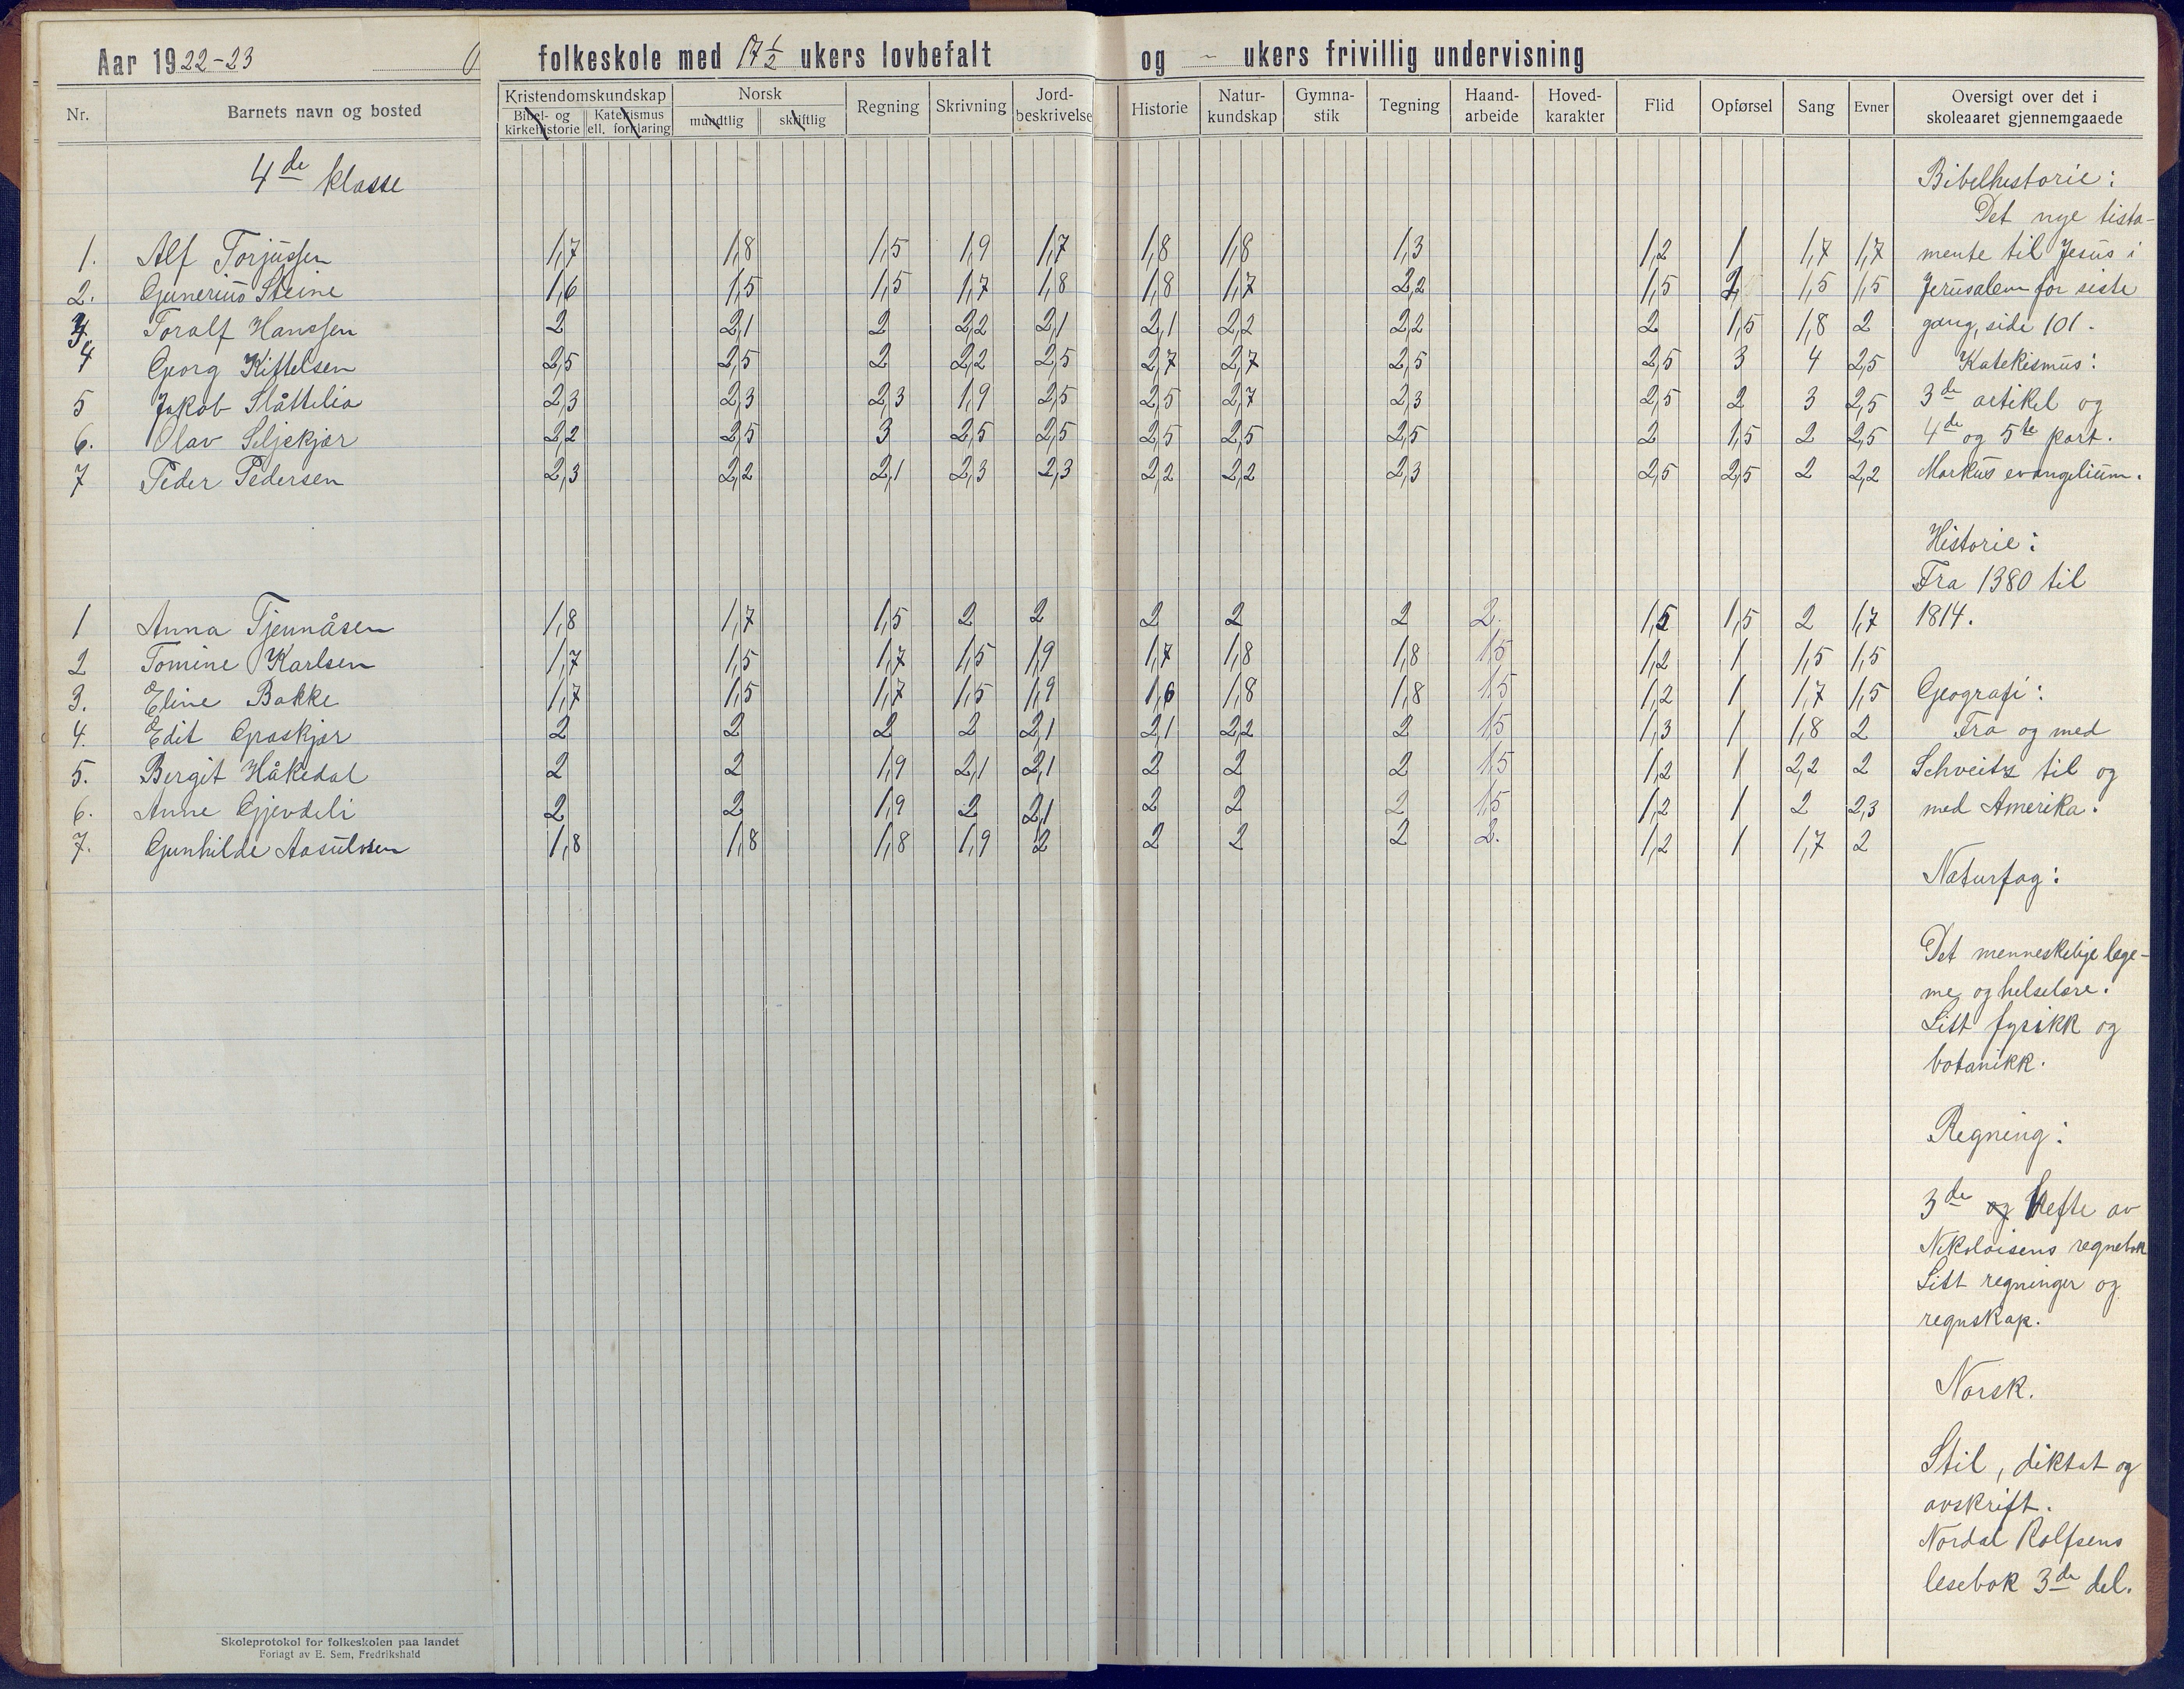 Aar 1922-23
folkeskole med 17 1/2 ukers lovbefalt og - ukers frivillig undervisning
Nr. Barnets navn og bosted Kristendomskundskap Bibel- og kirkehistorie Katekismus ell. forklaring Norsk mundtlig skriftlig Regning Skrivning Jord-beskrivelse Historie Natur-kundskap Gymna-stik Tegning Haand-arbeide Hoved-karakter Flid Opførsel Sang Evner Oversigt over det i skoleaaret gjennemgaaede
4de klasse
1. Alf Torjussen 1,7 1,8 1,5 1,9 1,7 1,8 1,8 1,3 1,2 1 1,7 1,7
2. Gunerius Steine 1,6 1,5 1,5 1,7 1,8 1,8 1,7 2,2 1,5 2 1,5 1,5
3. Toralf Hanssen 2 2,1 2 2,2 2,1 2,1 2,2 2,2 2 1,5 1,8 2
4 Georg Kittelsen 2,5 2,5 2 2,2 2,5 2,7 2,7 2,5 2,5 3 4 2,5
5 Jakob Slåttelia 2,3 2,3 2,3 1,9 2,5 2,5 2,7 2,3 2,5 2 3 2,5
6. Olav Seljekjær 2,2 2,5 3 2,5 2,5 2,5 2,5 2,5 2 1,5 2 2,5
7 Peder Pedersen 2,3 2,2 2,1 2,3 2,3 2,2 2,2 2,3 2,5 2,5 2 2,2
1 Anna Tjennåsen 1,8 1,7 1,5 2 2 2 2 2 2. 1,5 1,5 2 1,7
2 Tomine Karlsen 1,7 1,5 1,7 1,5 1,9 1,7 1,8 1,8 1,5 1,2 1 1,5 1,5
3. Eline Bakke 1,7 1,5 1,7 1,5 1,9 1,6 1,8 1,8 1,5 1,2 1 1,7 1,5
4. Edit Graskjær 2 2 2 2 2,1 2,1 2,2 2 1,5 1,3 1 1,8 2
5. Bergit Håkedal 2 2 1,9 2,1 2,1 2 2 2 1,5 1,2 1 2,2 2
6. Anne Gjevdeli 2 2 1,9 2 2,1 2 2 2 1,5 1,2 1 2 2,3
7. Gunhilde Aasulvsen 1,8 1,8 1,8 1,9 2 2 2 2 2. 1,2 1 1,7 2
Bibelhistorie:
Det nye tista-
mente til Jesus i
Jerusalem for siste
gang, side 101.
Katekismus:
3de artikel og
4de og 5te part.
Markus evangelium.
Historie:
Fra 1380 til
1814.
Geografi:
Fra og med
Schveitz til og
med Amerika.
Naturfag:
Det menneskelige lege-
me og helselære.
Litt fysikk og
botanikk.
Regning:
3de og hefte av
Nikolaisens regnebok
Litt regninger og
regnskap.
Norsk.
Stil, diktat og
avskrift.
Nordal Rolfsens
lesebok 3de del.
Skoleprotokol for folkeskolen paa landet
Forlagt av E. Sem, Fredrikshald